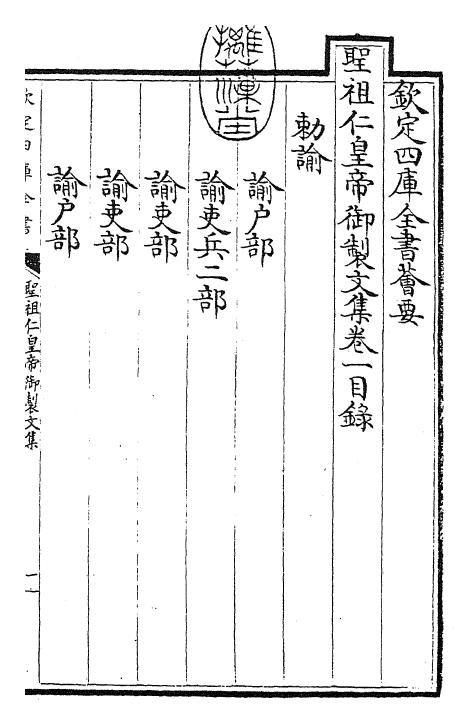 欽定四庫全書薈要
聖祖仁皇帝御製文集卷一目錄
勅諭
諭户部
諭吏兵二部
諭吏部
諭吏部
諭户部
欽定四庫全書
聖祖仁皇帝御製文集
一
摛藻堂